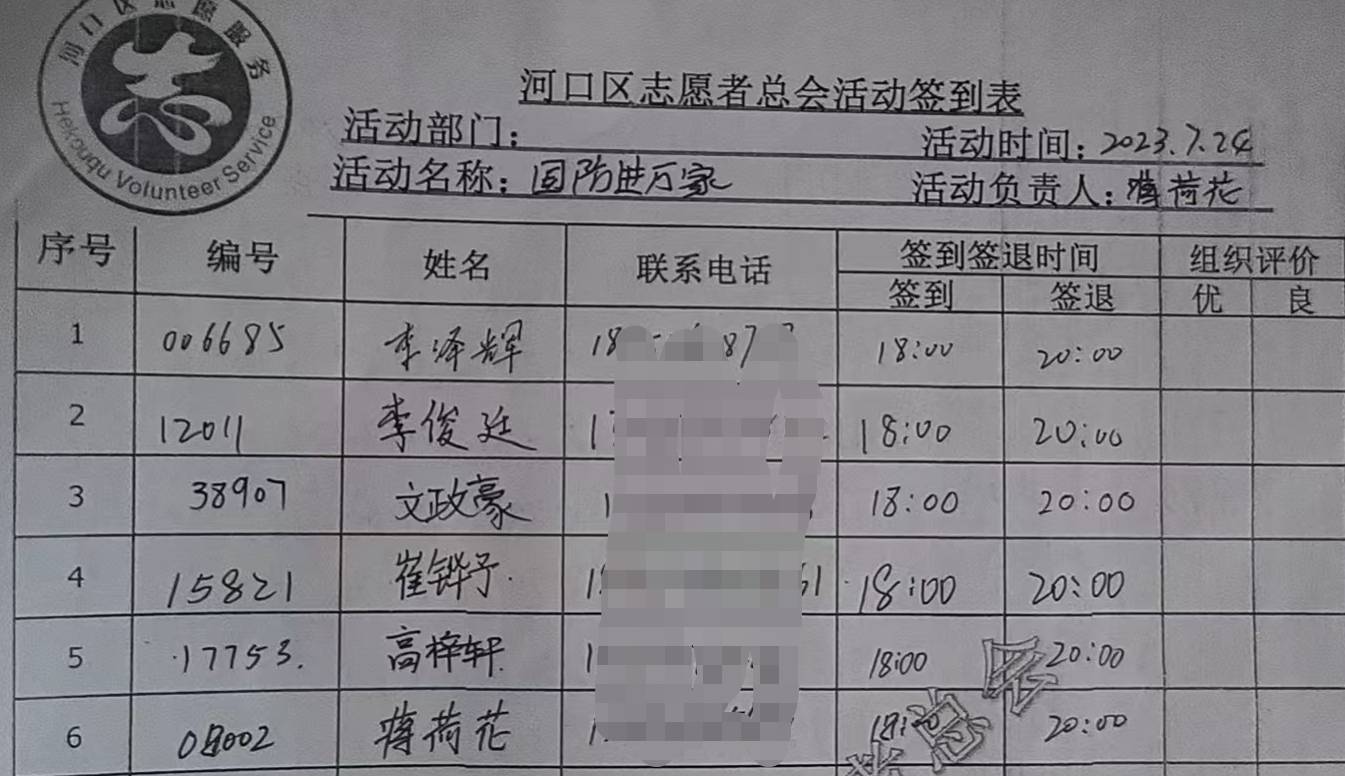 河口区志愿服务
Hekouqu Volunteer Service
河口区志愿者总会活动签到表
活动部门： 活动时间：2023.7.24
活动名称：国防进万家 活动负责人：蒋荷花
序号 编号 姓名 联系电话 签到签退时间 组织评价
签到 签退 优 良
1 006685 李泽辉 18:00 20:00
2 12011 李俊廷 18:00 20:00
3 38907 文政豪 18:00 20:00
4 15821 崔铧予 18:00 20:00
5 17753 高梓轩 18:00 20:00
6 蒋荷花 20:00